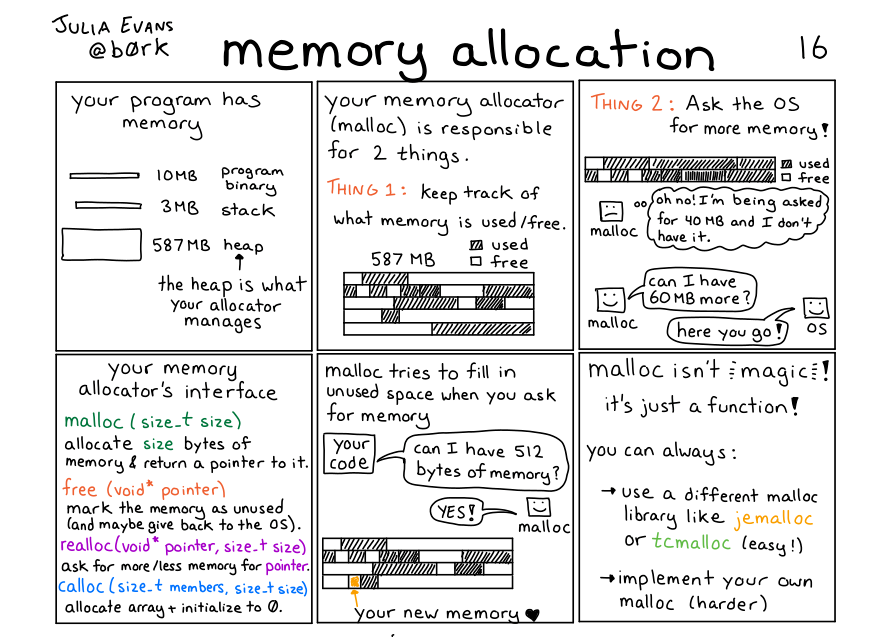 JULIA EVANS
@b0rk
memory allocation
16
your program has
memory
10MB program
binary
3MB stack
587MB heap
the heap is what
your allocator
manages
your memory allocator
(malloc) is responsible
for 2 things.
THING 1: keep track of
what memory is used/free.
587 MB
used
free
THING 2: Ask the OS
for more memory!
used
free
oh no! I'm being asked
for 40 MB and I don't
have it.
malloc
can I have
60MB more?
malloc
here you go!
OS
your memory
allocator's interface
malloc (size_t size)
allocate size bytes of
memory & return a pointer to it.
free (void* pointer)
mark the memory as unused
(and maybe give back to the OS).
realloc(void* pointer, size_t size)
ask for more/less memory for pointer.
calloc (size_t members, size_t size)
allocate array + initialize to 0.
malloc tries to fill in
unused space when you ask
for memory
your
code
can I have 512
bytes of memory?
YES!
malloc
your new memory
malloc isn't magic!
it's just a function!
you can always:
→ use a different malloc
library like jemalloc
or tcmalloc (easy!)
→ implement your own
malloc (harder)